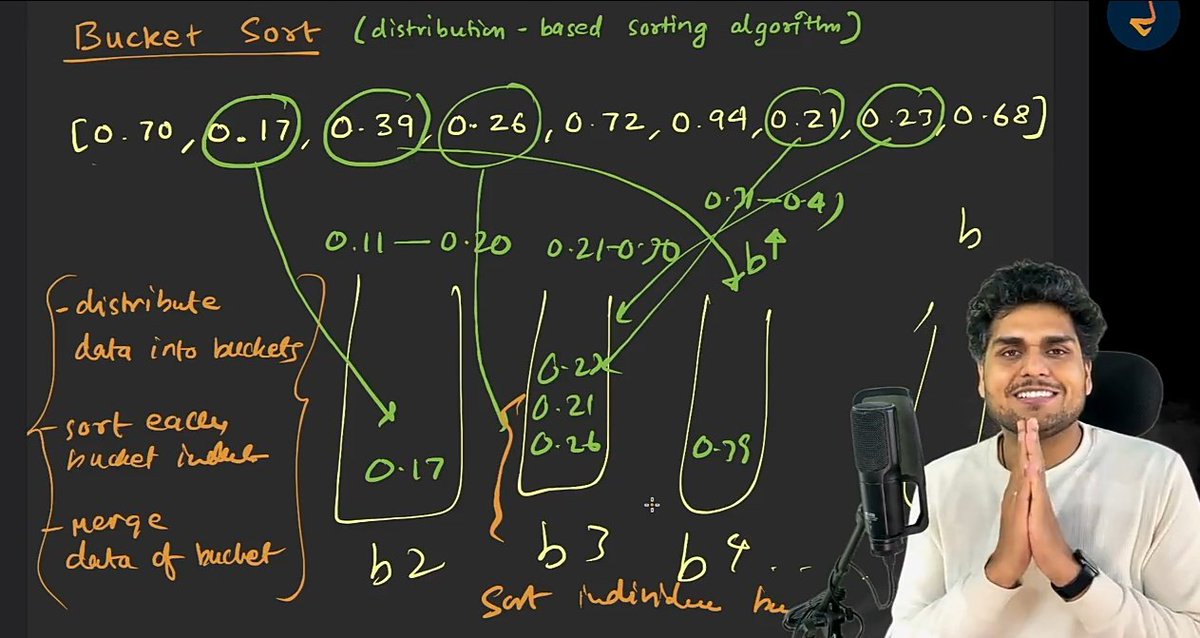 Bucket Sort (distribution-based sorting algorithm)
[0.70, 0.17, 0.39, 0.26, 0.72, 0.94, 0.21, 0.23, 0.68]
0.11 — 0.20
0.21-0.30
b
b
- distribute
data into buckets
- sort each
bucket
- Merge
data of bucket
0.17
0.21
0.26
b2
b3
b4 ..
Sort